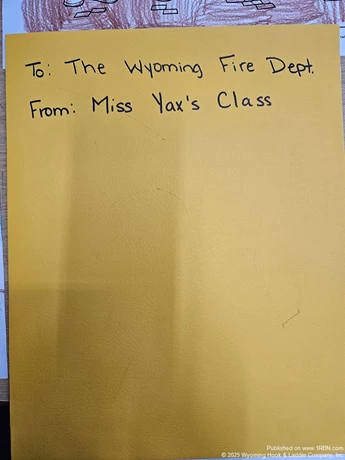 To: The Wyoming Fire Dept.
From: Miss Yax's Class
Published on www.1RBN.com
© 2025 Wyoming Hook & Ladder Company, Inc